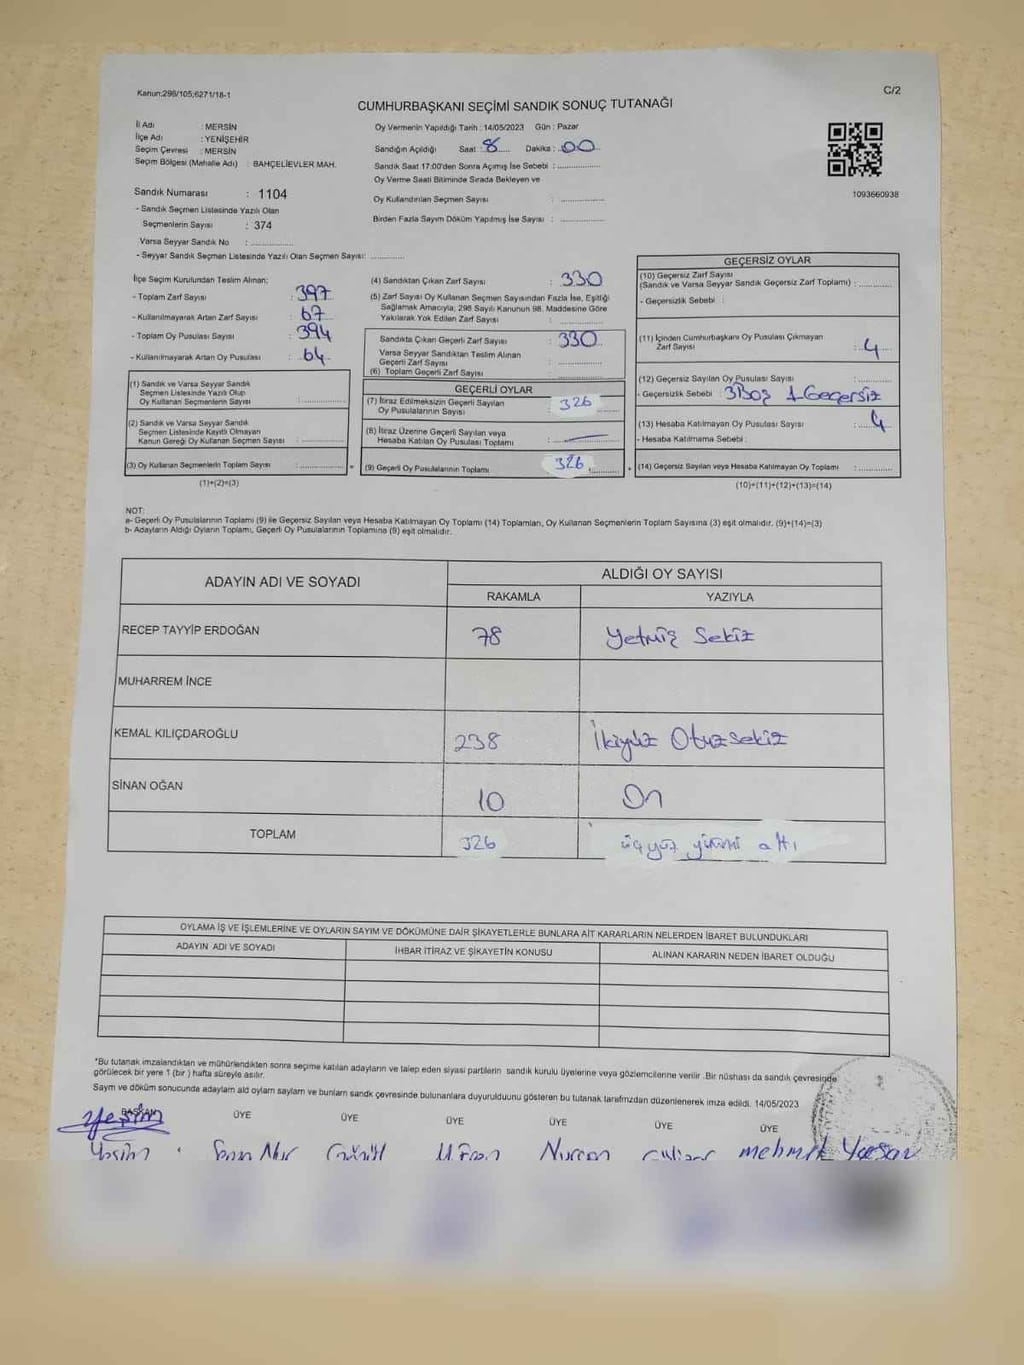 Kanun:298/105;6271/18-1
C/2
CUMHURBAŞKANI SEÇİMİ SANDIK SONUÇ TUTANAĞI
İl Adı : MERSİN
İlçe Adı : YENİŞEHİR
Seçim Çevresi : MERSİN
Seçim Bölgesi (Mahalle Adı) : BAHÇELİEVLER MAH.
Sandık Numarası : 1104
- Sandık Seçmen Listesinde Yazılı Olan
Seçmenlerin Sayısı : 374
Varsa Seyyar Sandık No : ..............
- Seyyar Sandık Seçmen Listesinde Yazılı Olan Seçmen Sayısı: ............
Oy Vermenin Yapıldığı Tarih : 14/05/2023 Gün : Pazar
Sandığın Açıldığı Saat : 8 Dakika : 00
Sandık Saat 17:00'den Sonra Açımış İse Sebebi : ..............
Oy Verme Saati Bitiminde Sırada Bekleyen ve
Oy Kullandırılan Seçmen Sayısı : ..............
Birden Fazla Sayım Döküm Yapılmış İse Sayısı : ..............
1093660938
İlçe Seçim Kurulundan Teslim Alınan;
- Toplam Zarf Sayısı : 397
- Kullanılmayarak Artan Zarf Sayısı : 67
- Toplam Oy Pusulası Sayısı : 394
- Kullanılmayarak Artan Oy Pusulası : 64
(1) Sandık ve Varsa Seyyar Sandık
Seçmen Listesinde Yazılı Olup
Oy Kullanan Seçmenlerin Sayısı : ..............
(2) Sandık ve Varsa Seyyar Sandık
Seçmen Listesinde Kayıtlı Olmayan
Kanun Gereği Oy Kullanan Seçmen Sayısı : ..............
(3) Oy Kullanan Seçmenlerin Toplam Sayısı : ..............
(1)+(2)=(3)
=
(4) Sandıktan Çıkan Zarf Sayısı : 330
(5) Zarf Sayısı Oy Kullanan Seçmen Sayısından Fazla İse, Eşitliği
Sağlamak Amacıyla; 298 Sayılı Kanunun 98. Maddesine Göre
Yakılarak Yok Edilen Zarf Sayısı : ..............
Sandıkta Çıkan Geçerli Zarf Sayısı : 330
Varsa Seyyar Sandıktan Teslim Alınan
Geçerli Zarf Sayısı : ..............
(6) Toplam Geçerli Zarf Sayısı : ..............
GEÇERLİ OYLAR
(7) İtiraz Edilmeksizin Geçerli Sayılan
Oy Pusulalarının Sayısı : 326
(8) İtiraz Üzerine Geçerli Sayılan veya
Hesaba Katılan Oy Pusulası Toplamı : —
(9) Geçerli Oy Pusulalarının Toplamı : 326
+
GEÇERSİZ OYLAR
(10) Geçersiz Zarf Sayısı
(Sandık ve Varsa Seyyar Sandık Geçersiz Zarf Toplamı) : ..............
- Geçersizlik Sebebi :
(11) İçinden Cumhurbaşkanı Oy Pusulası Çıkmayan
Zarf Sayısı : 4
(12) Geçersiz Sayılan Oy Pusulası Sayısı : ..............
- Geçersizlik Sebebi : 3 Boş 1 Geçersiz
(13) Hesaba Katılmayan Oy Pusulası Sayısı : 4
- Hesaba Katılmama Sebebi :
(14) Geçersiz Sayılan veya Hesaba Katılmayan Oy Toplamı : ..............
(10)+(11)+(12)+(13)=(14)
NOT:
a- Geçerli Oy Pusulalarının Toplamı (9) ile Geçersiz Sayılan veya Hesaba Katılmayan Oy Toplamı (14) Toplamları, Oy Kullanan Seçmenlerin Toplam Sayısına (3) eşit olmalıdır. (9)+(14)=(3)
b- Adayların Aldığı Oyların Toplamı, Geçerli Oy Pusulalarının Toplamına (9) eşit olmalıdır.
ADAYIN ADI VE SOYADI
ALDIĞI OY SAYISI
RAKAMLA YAZIYLA
RECEP TAYYİP ERDOĞAN 78 Yetmiş Sekiz
MUHARREM İNCE
KEMAL KILIÇDAROĞLU 238 İkiyüz Otuzsekiz
SİNAN OĞAN 10 On
TOPLAM 326 üçyüz yirmi altı
OYLAMA İŞ VE İŞLEMLERİNE VE OYLARIN SAYIM VE DÖKÜMÜNE DAİR ŞİKAYETLERLE BUNLARA AİT KARARLARIN NELERDEN İBARET BULUNDUKLARI
ADAYIN ADI VE SOYADI İHBAR İTİRAZ VE ŞİKAYETİN KONUSU ALINAN KARARIN NEDEN İBARET OLDUĞU
*Bu tutanak imzalandıktan ve mühürlendikten sonra seçime katılan adayların ve talep eden siyasi partilerin sandık kurulu üyelerine veya gözlemcilerine verilir .Bir nüshası da sandık çevresinde
görülecek bir yere 1 (bir ) hafta süreyle asılır.
Sayım ve döküm sonucunda adayların aldığı oyların sayılarını ve bunların sandık çevresinde bulunanlara duyurulduğunu gösteren bu tutanak tarafımızdan düzenlenerek imza edildi. 14/05/2023
BAŞKAN ÜYE ÜYE ÜYE ÜYE ÜYE ÜYE
Yeşim
Nurcan mehmet Yaşar